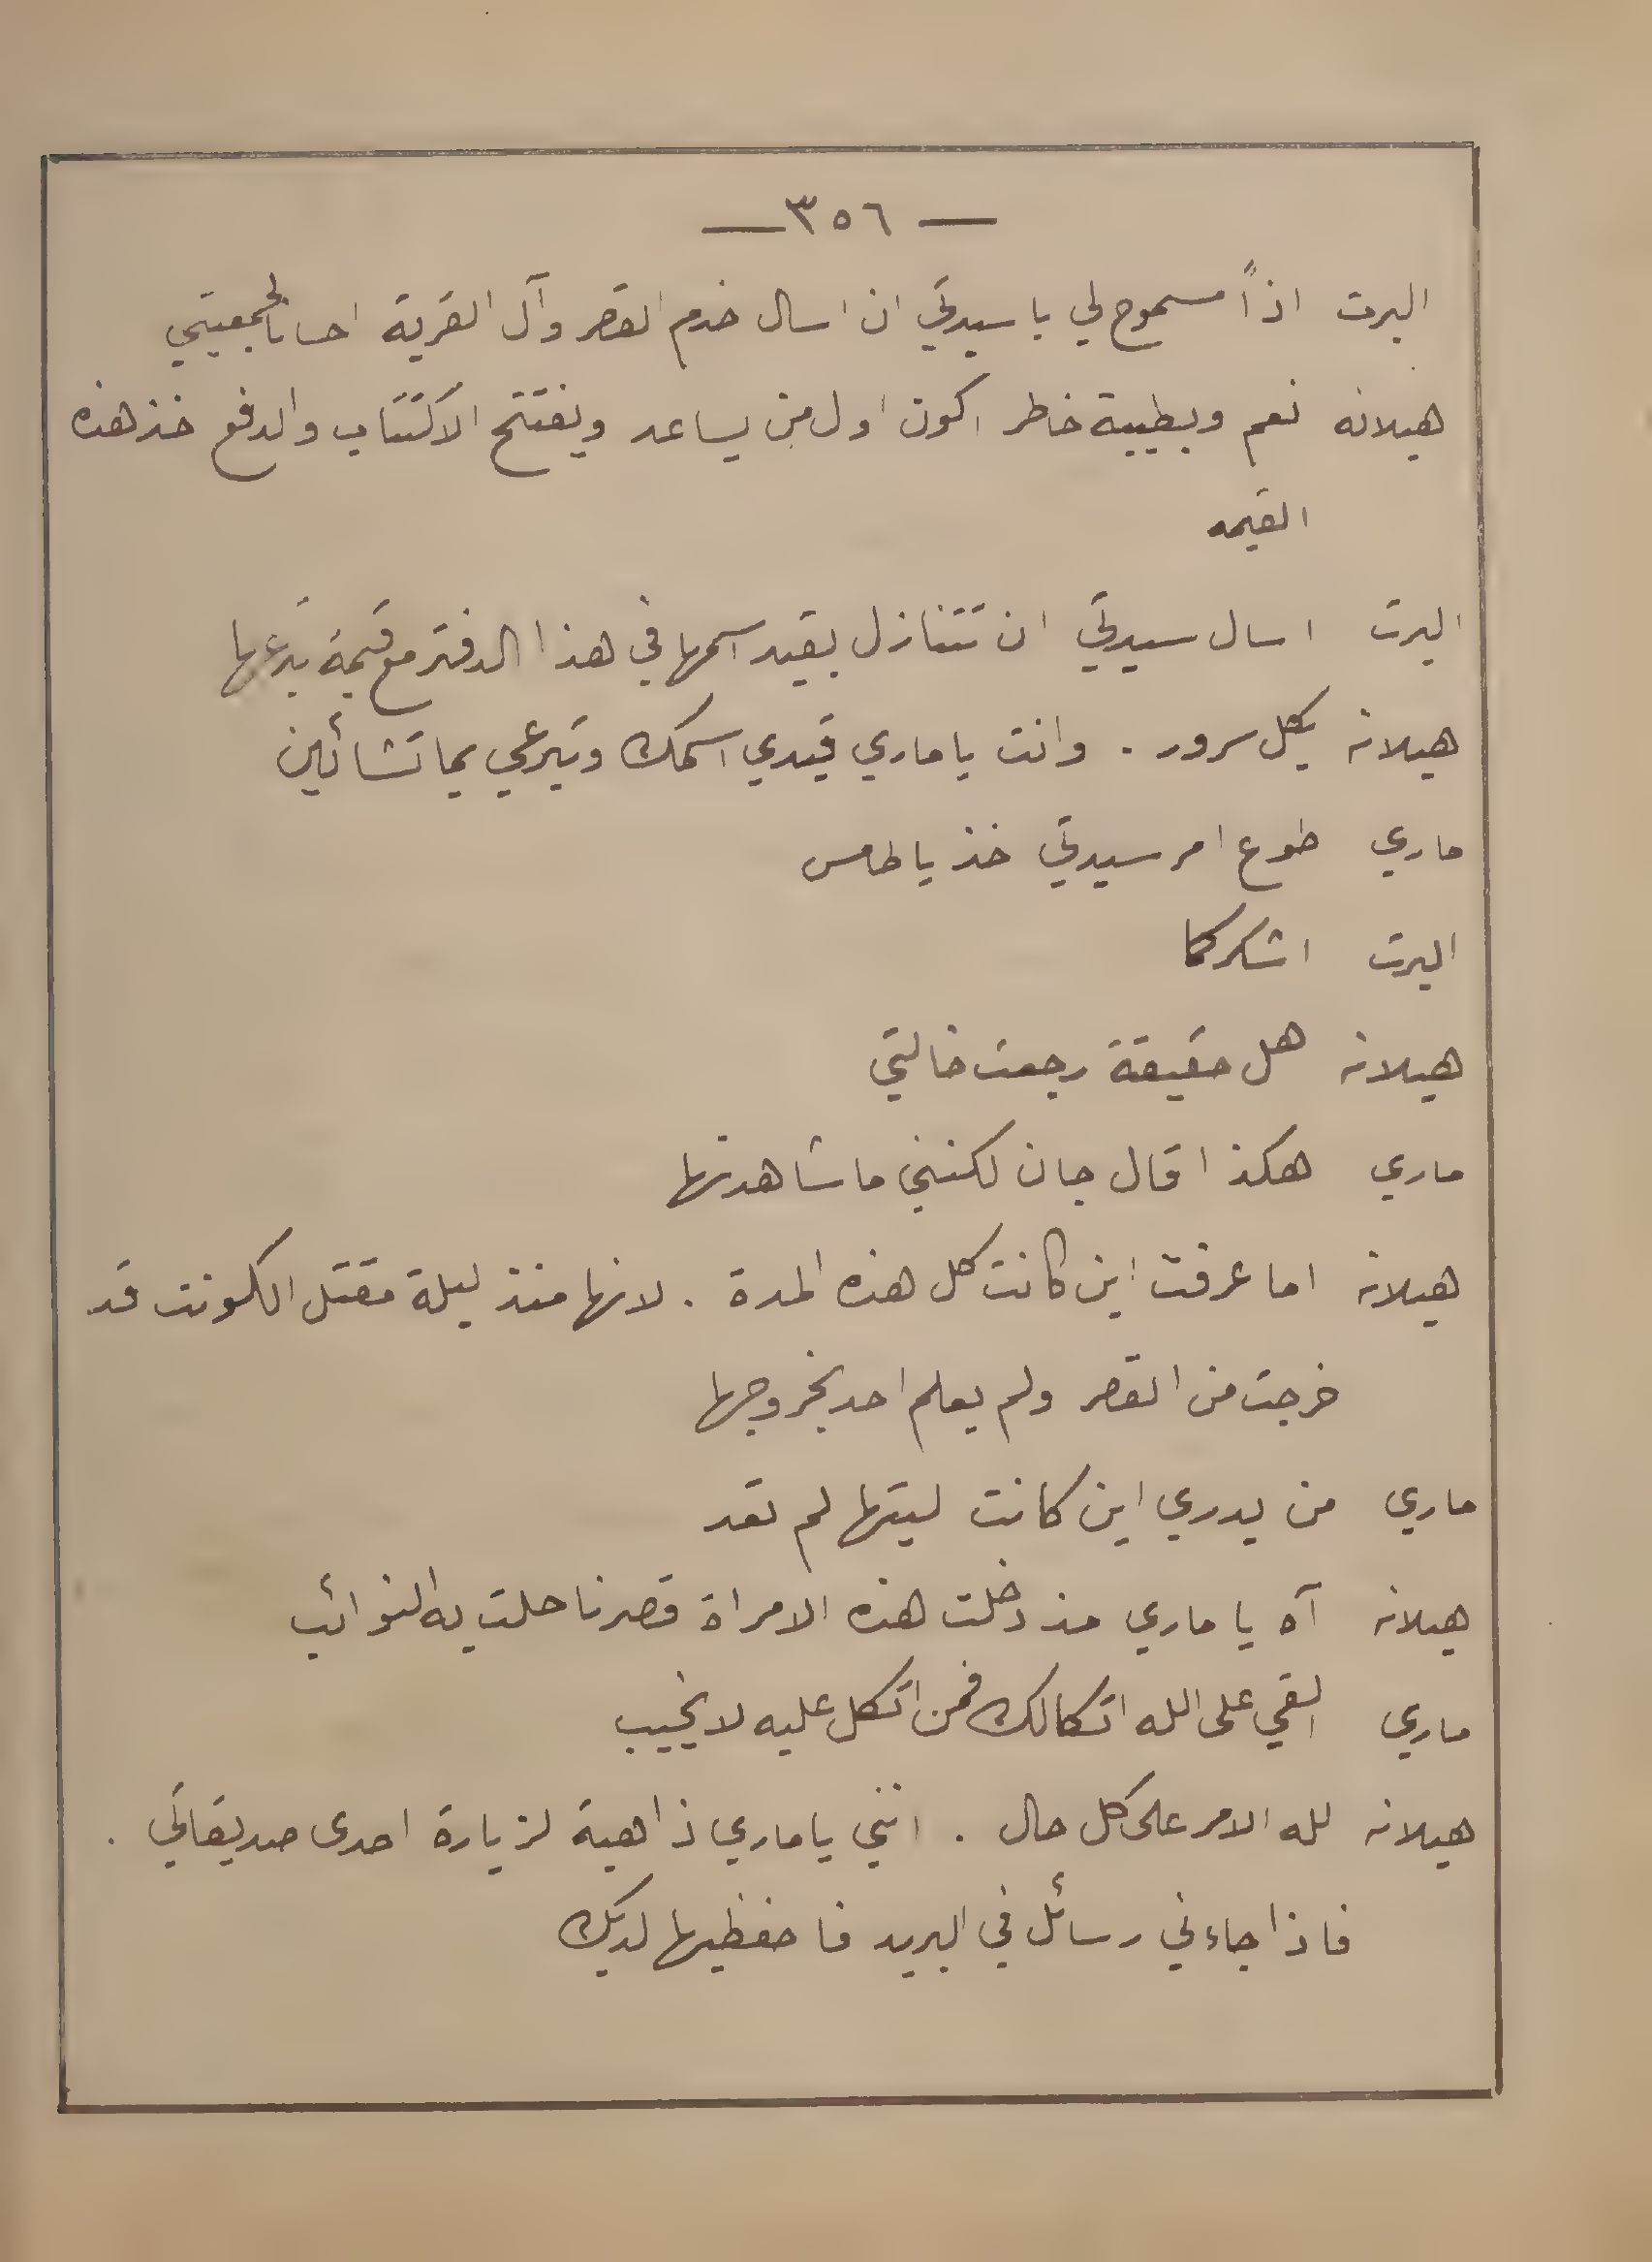 — ٣٥٦ —
البرت اذاً مسموح لي يا سيدتي ان اسال خدم القصر وآل القرية احسانا لجمعيتي
هيلانه نعم وبطيبة خاطر اكون اول من يساعد ويفتتح الاكتتاب والدفع خذ هذه
القيمه
البرت اسال سيدتي ان تتنازل بقيد اسمها في هذا الدفتر مع قيمة تبرعها
هيلانه بكل سرور . وانت يا ماري قيدي اسمك وتبرعي بما تشائين
ماري طوع امر سيدتي خذ يا طامس
البرت اشكركما
هيلانه هل حقيقة رجعت خالتي
ماري هكذا قال جان لكنني ما شاهدتها
هيلانه اما عرفت اين كانت كل هذه المدة . لانها منذ ليلة مقتل الكونت قد
خرجت من القصر ولم يعلم احد بخروجها
ماري من يدري اين كانت ليتها لم تعد
هيلانه آه يا ماري مذ دخلت هذه الامراة قصرنا حلت به النوائب
ماري القي على الله اتكالك فمن اتكل عليه لا يخيب
هيلانه لله الامر على كل حال . انني يا ماري ذاهبة لزيارة احدى صديقاتي .
فاذا جاءني رسائل في البريد فاحفظيها لديك